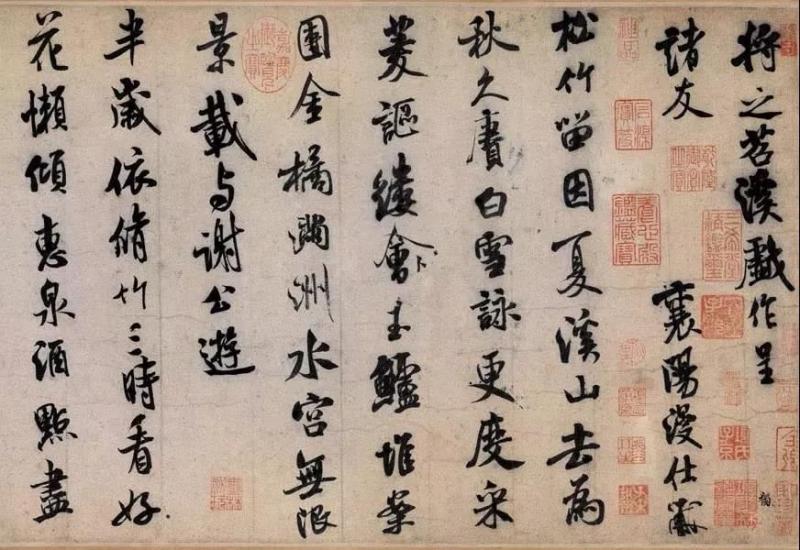 将之苕溪戲作呈
諸友 襄陽漫仕黻
松竹留因夏溪山去為
秋久賡白雪詠更度采
菱謳縷會玉鱸堆案
團金橘滿洲水宮無限
景載与謝公遊
半歲依脩竹三時看好
花懶傾惠泉酒點盡